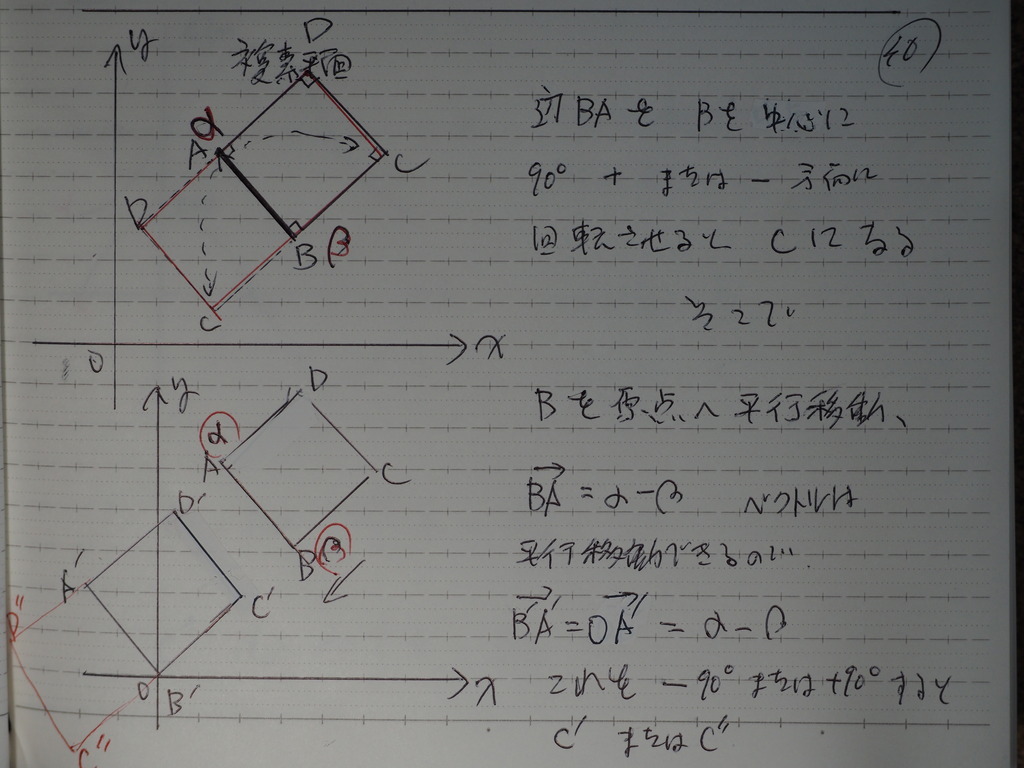 複素平面
y
D
α
A
C
D
B β
C
O
x
40
辺BAを Bを中心に
90° + または − 方向に
回転させると Cになる
そこで
Bを原点へ平行移動、
BA = α−β ベクトルは
平行移動できるので
B'A' = OA' = α−β
これを −90°または+90°すると
C' または C''
y
D
α
A
C
B β
D'
A'
C'
D''
O
B'
x
C''